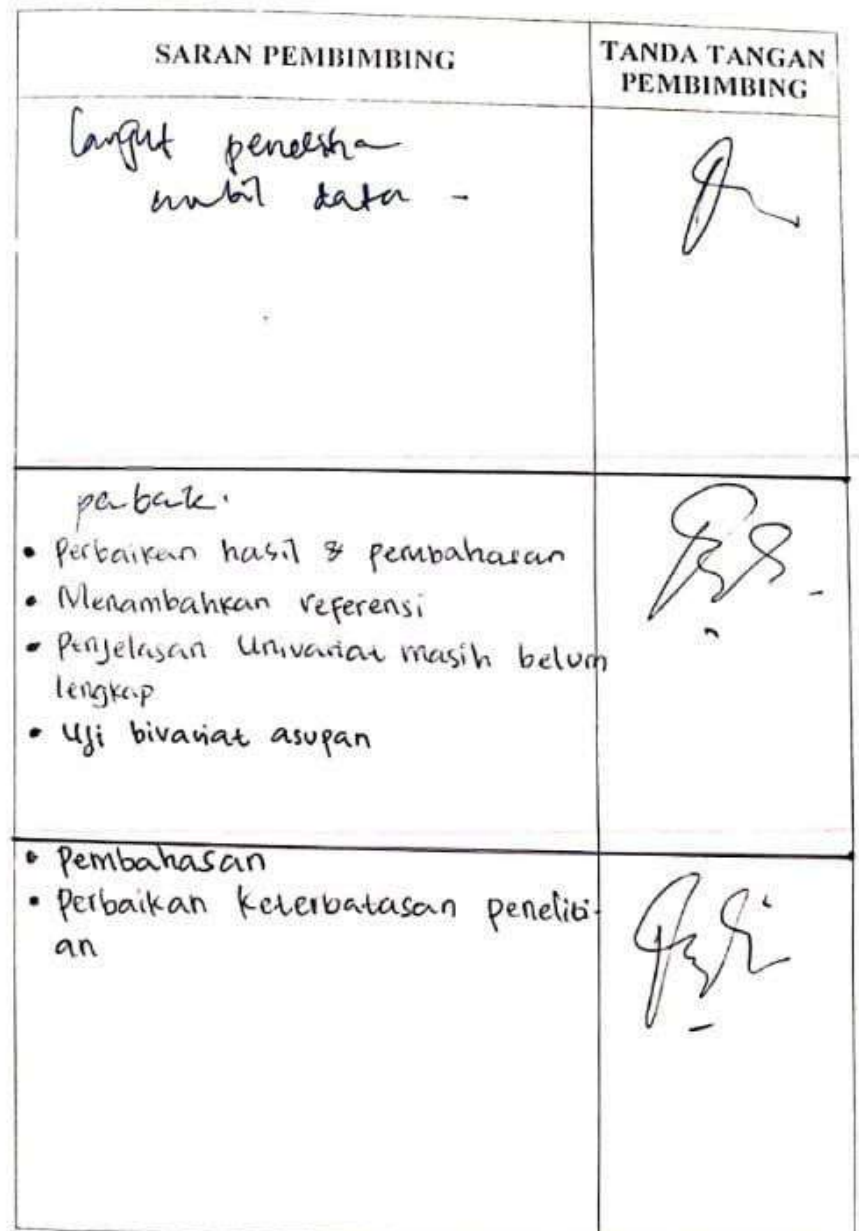 SARAN PEMBIMBING
TANDA TANGAN
PEMBIMBING
data -
• Perbaikan hasil & pembahasan
• Menambahkan referensi
• Penjelasan Univariat masih belum
lengkap
• Uji bivariat asupan
• Pembahasan
• Perbaikan keterbatasan peneliti-
an